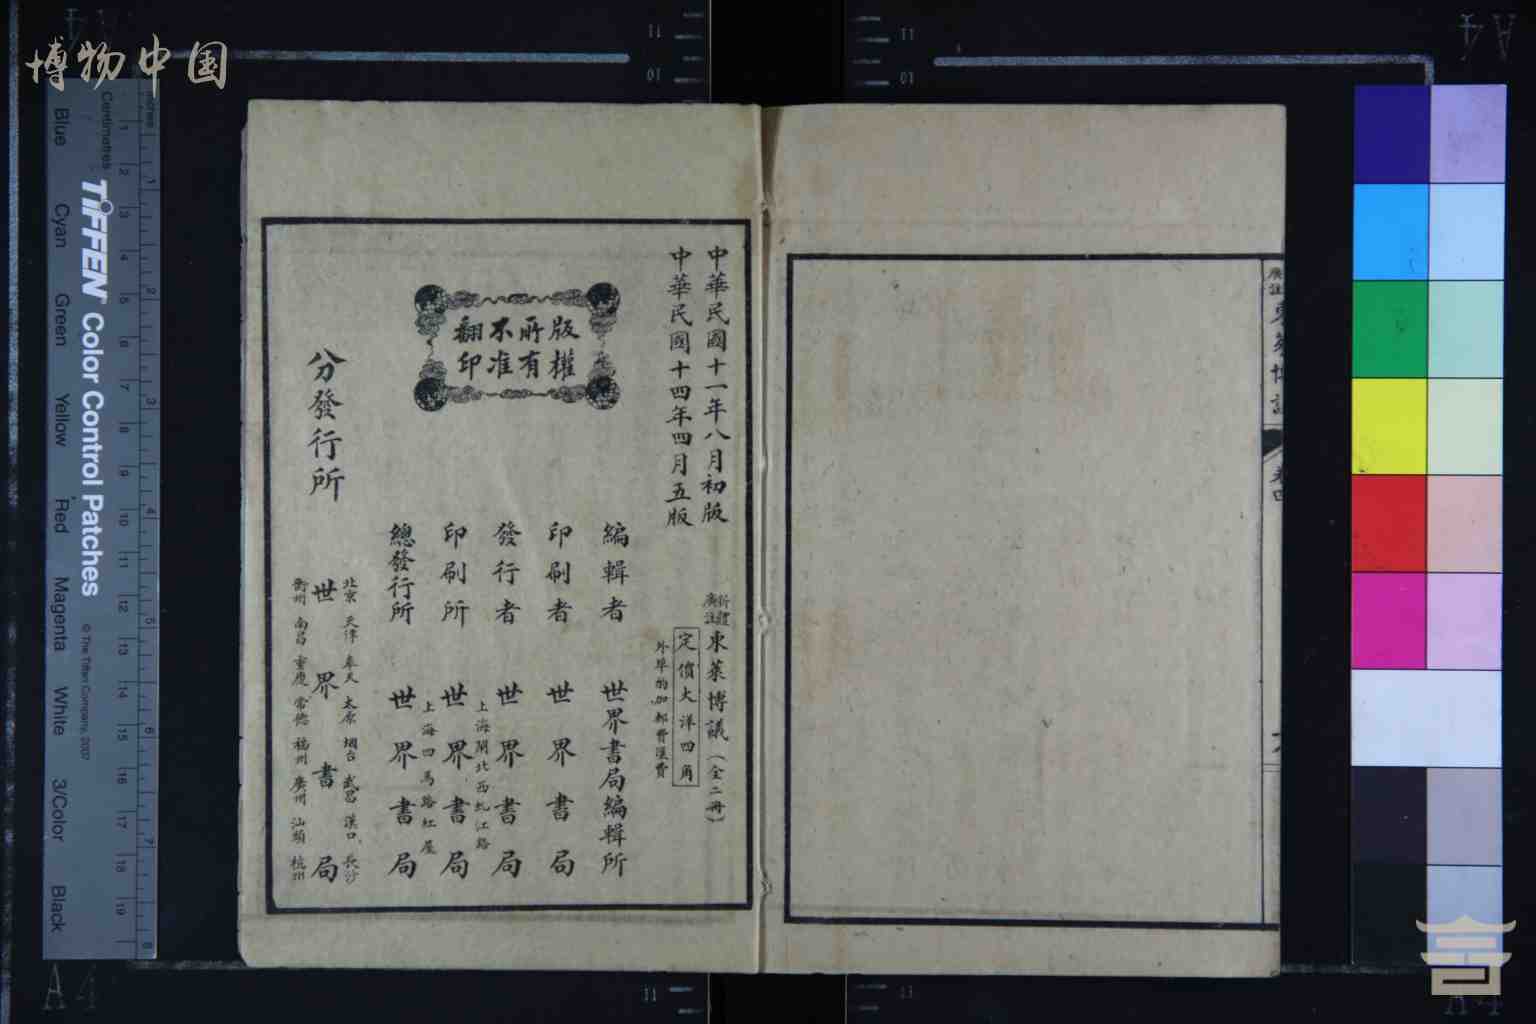 博物中国
廣註東萊博議
卷四
中華民國十一年八月初版
中華民國十四年四月五版
新體廣註東萊博議（全二冊）
定價大洋四角
外埠酌加郵費匯費
版權所有不准翻印
編輯者 世界書局編輯所
印刷者 世界書局
發行者 世界書局
上海閘北西虬江路
印刷所 世界書局
上海四馬路紅屋
總發行所 世界書局
分發行所
北京 天津 奉天 太原 烟台 武昌 漢口 長沙
世界書局
衡州 南昌 重慶 常德 福州 廣州 汕頭 杭州
inches
Centimetres
TIFFEN Color Control Patches
© The Tiffen Company, 2007
Blue
Cyan
Green
Yellow
Red
Magenta
White
3/Color
Black
1 2 3 4 5 6 7 8 9 10 11 12 13 14 15 16 17 18 19
1 2 3 4 5 6 7 8
A4
A4
11
10
11
10
11
11
A4
A4